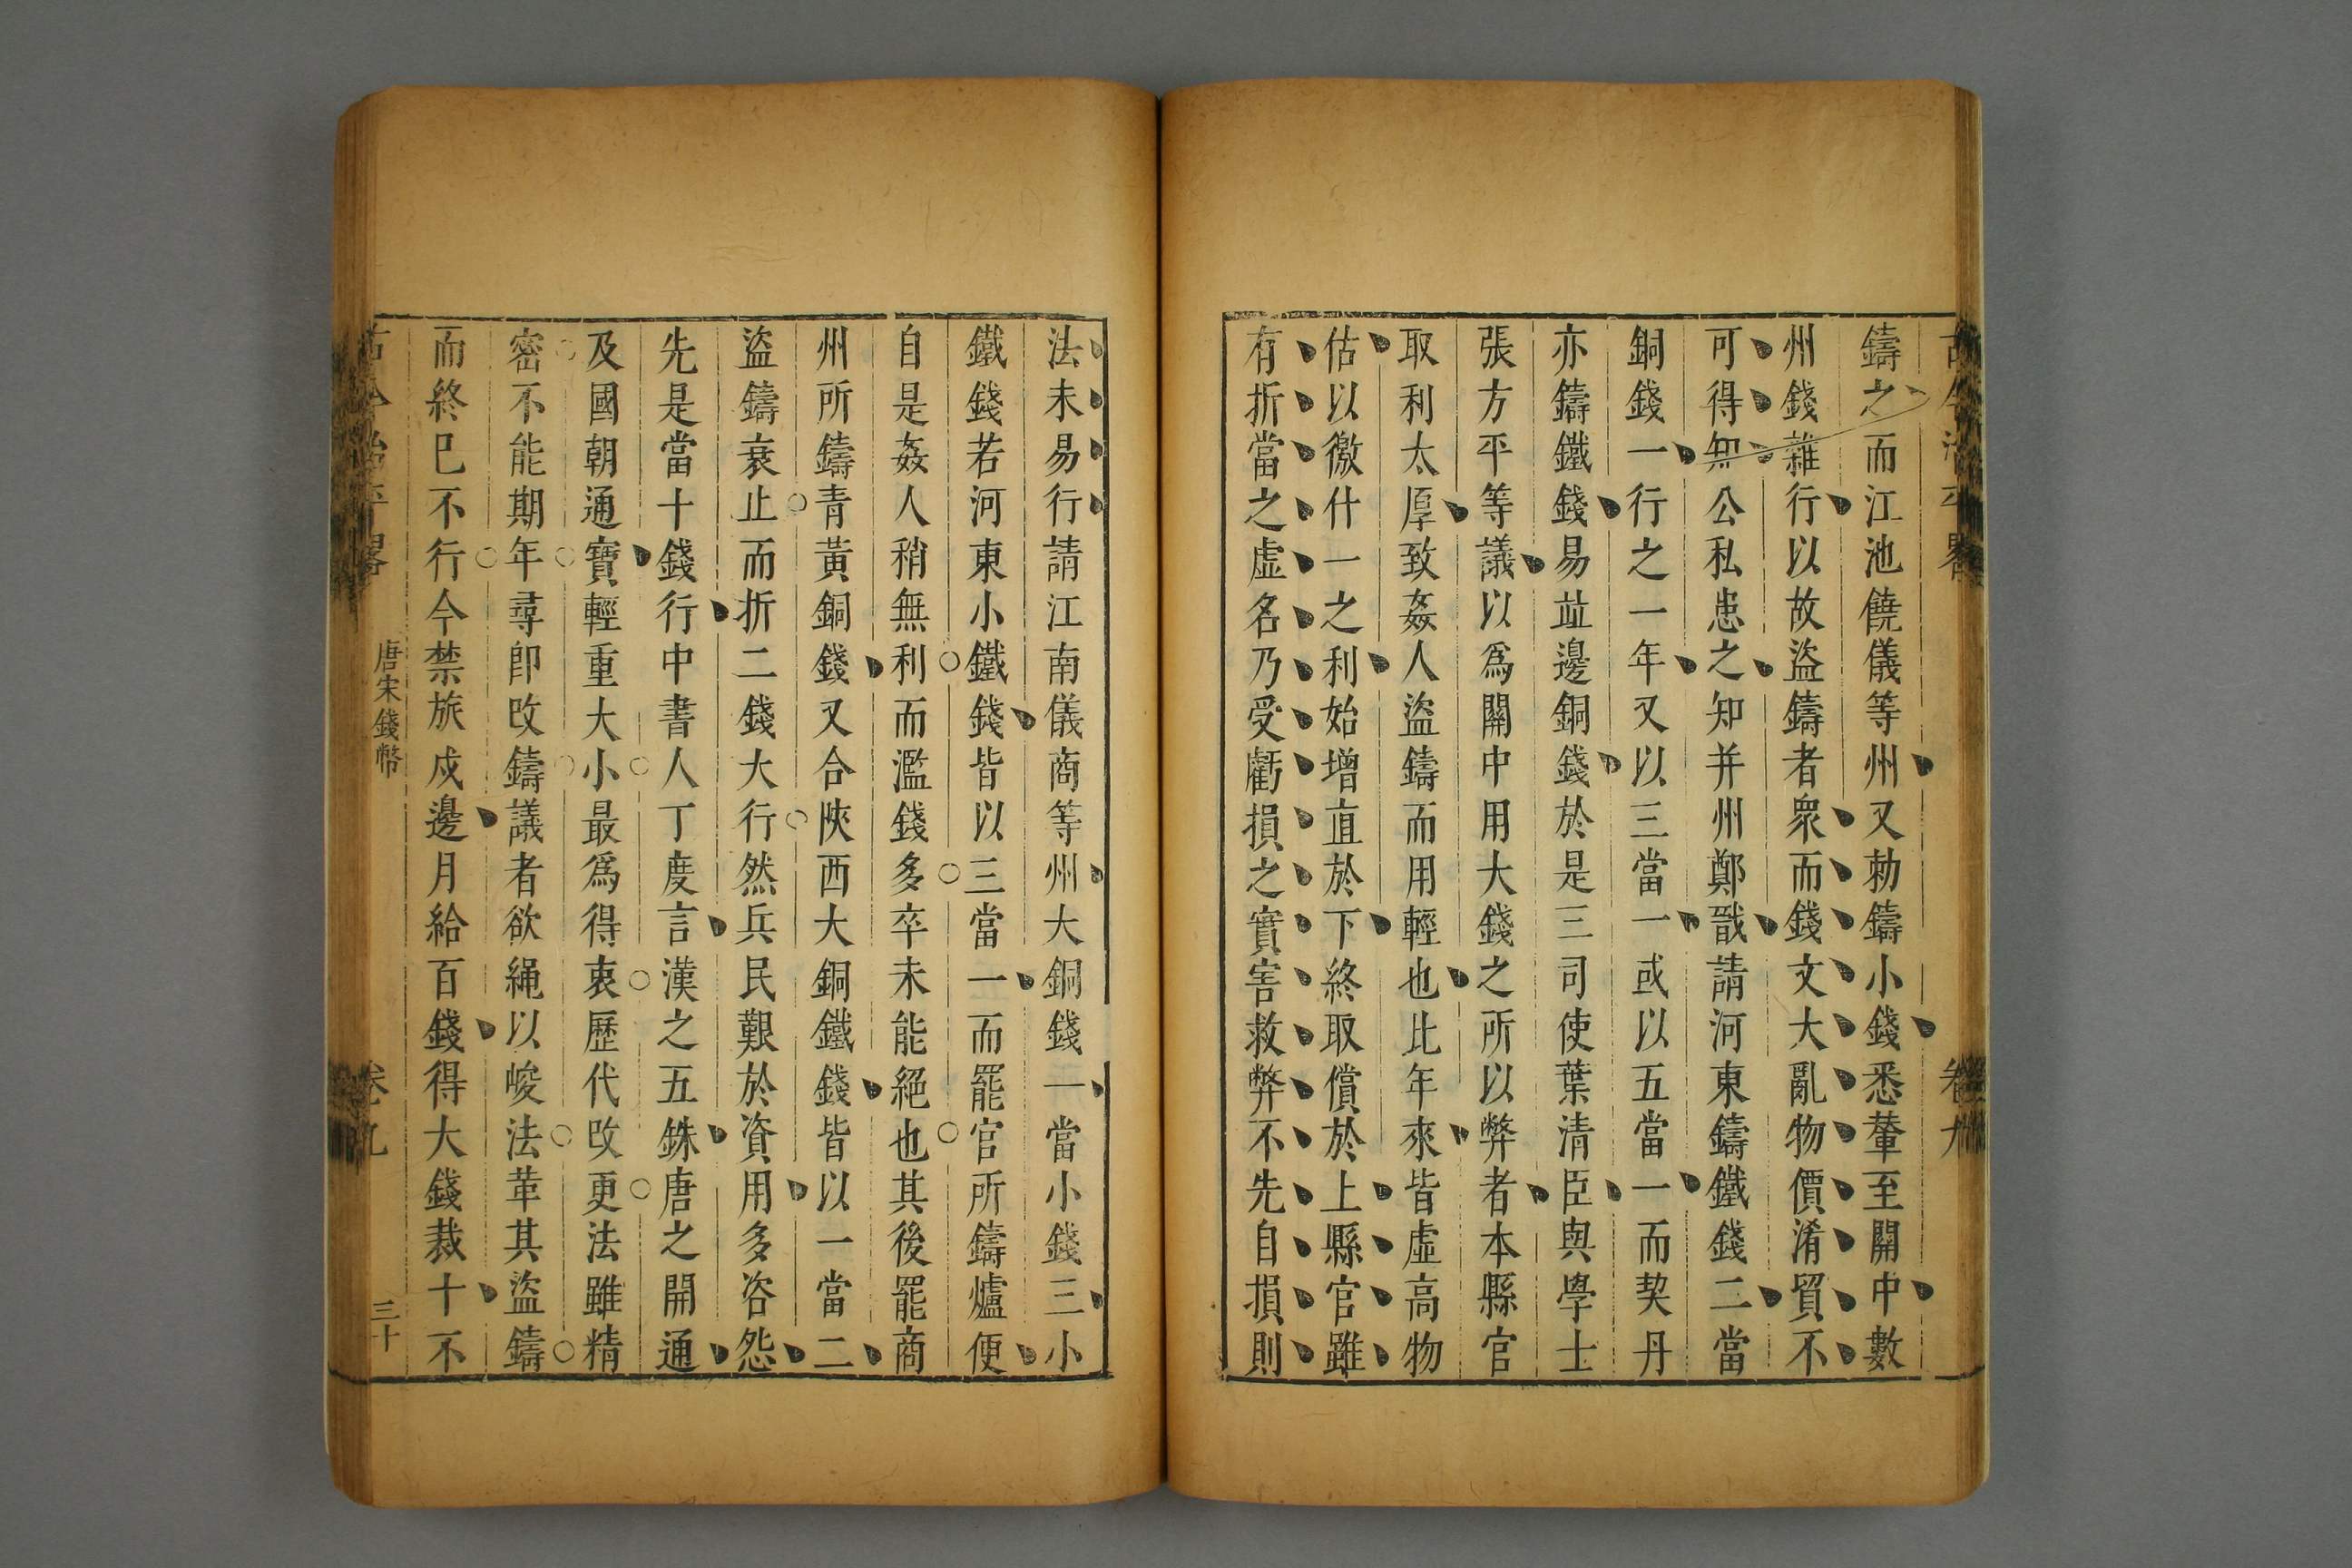 鑄之而江池饒儀等州又勅鑄小錢悉輦至關中數
州錢雜行以故盜鑄者衆而錢文大亂物價淆貿不
可得知公私患之知并州鄭戩請河東鑄鐵錢二當
銅錢一行之一年又以三當一或以五當一而契丹
亦鑄鐵錢易竝邊銅錢於是三司使葉清臣與學士
張方平等議以爲關中用大錢之所以弊者本縣官
取利太厚致姦人盜鑄而用輕也比年來皆虛高物
估以徼什一之利始增直於下終取償於上縣官雖
有折當之虛名乃受虧損之實害救弊不先自損則
法未易行請江南儀商等州大銅錢一當小錢三小
鐵錢若河東小鐵錢皆以三當一而罷官所鑄爐便
自是姦人稍無利而濫錢多卒未能絕也其後罷商
州所鑄青黃銅錢又合陜西大銅鐵錢皆以一當二
盜鑄衰止而折二錢大行然兵民艱於資用多咨怨
先是當十錢行中書人丁度言漢之五銖唐之開通
及國朝通寶輕重大小最爲得衷歷代改更法雖精
密不能期年尋卽改鑄議者欲繩以峻法革其盜鑄
而終巳不行今禁旅戍邊月給百錢得大錢裁十不
古今治平畧
唐宋錢幣
卷九
三十